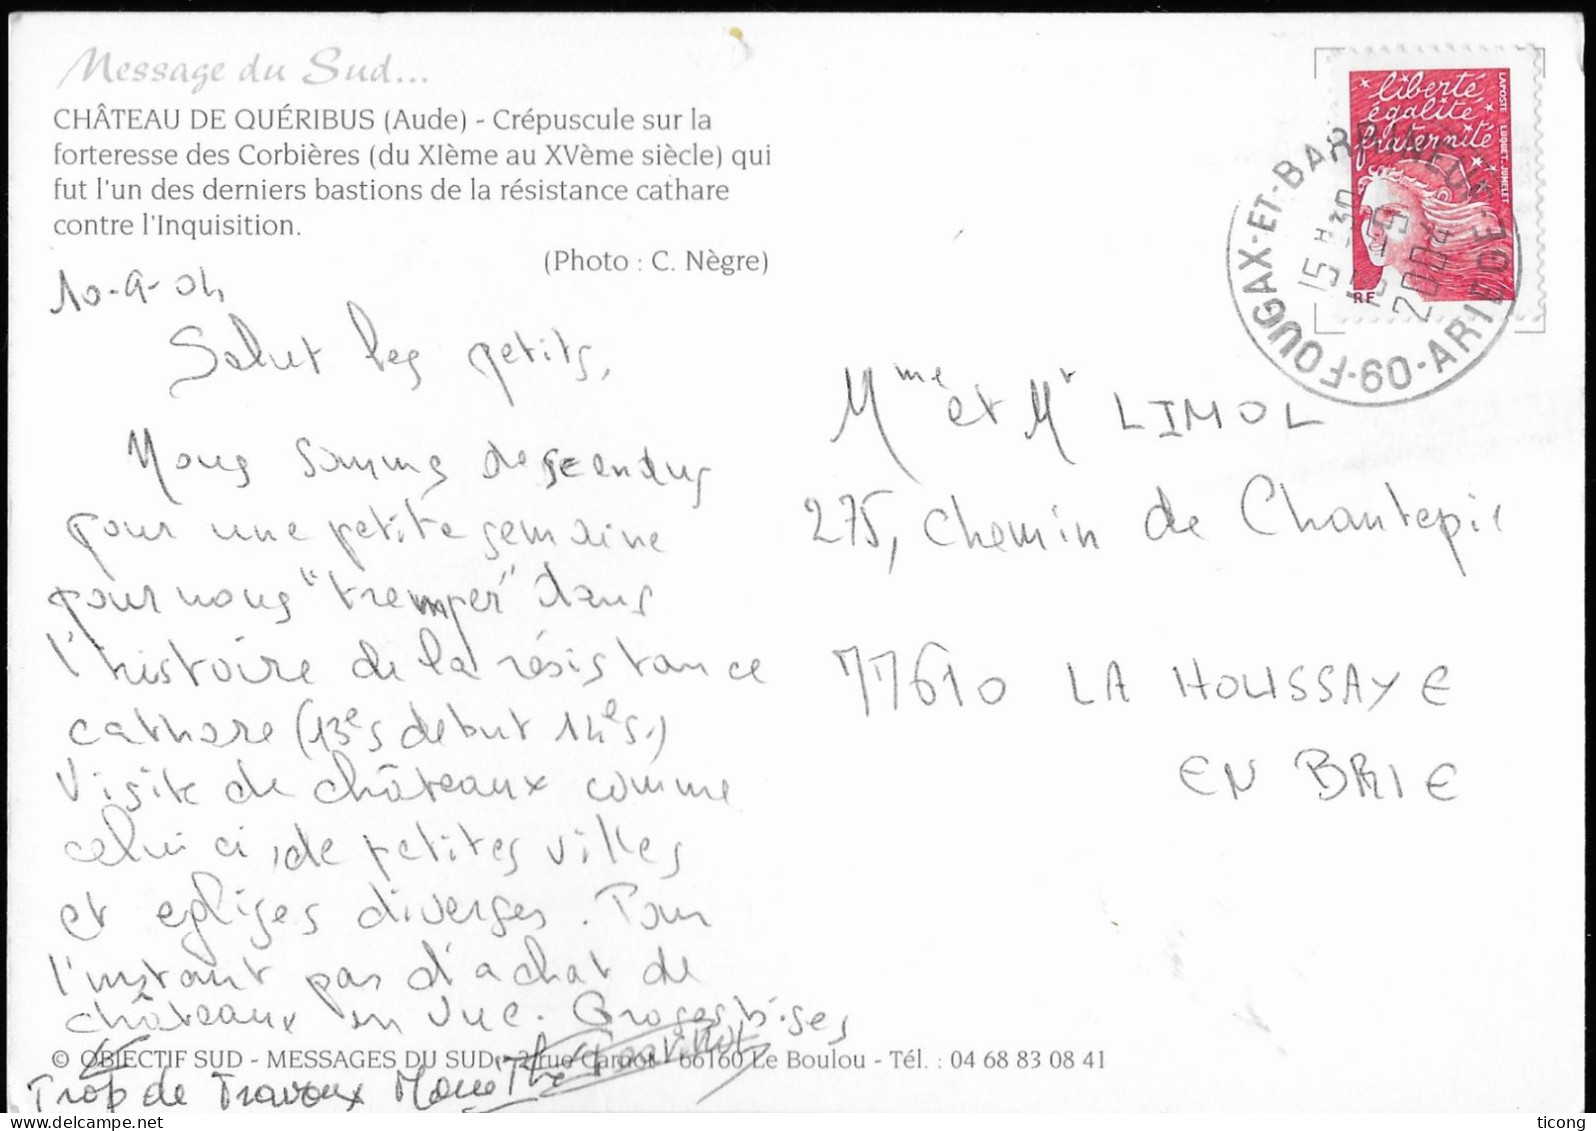 Message du Sud...
CHÂTEAU DE QUÉRIBUS (Aude) - Crépuscule sur la
forteresse des Corbières (du XIème au XVème siècle) qui
fut l'un des derniers bastions de la résistance cathare
contre l'Inquisition.
(Photo : C. Nègre)
10-9-04
Salut les petits,
Nous sommes descendus
pour une petite semaine
pour nous "tremper" dans
l'histoire de la résistance
cathare (13e s debut 14e s.)
Visite de châteaux comme
celui ci, de petites villes
et eglises diverses. Pour
l'instant pas d'achat de
châteaux en vue. Grosses bises
Trop de Travaux
© OBJECTIF SUD - MESSAGES DU SUD - 2 rue Carnot - 66160 Le Boulou - Tél. : 04 68 83 08 41
liberté
égalité
fraternité
LAPOSTE LUQUET.JUMELET
RF
FOUGAX-ET-BARRINEUF
15 H 30
2004
09-ARIEGE
Mme et Mr LIMOL
275, Chemin de Chantepie
77610 LA HOUSSAYE
EN BRIE
delcampe.net
ticong